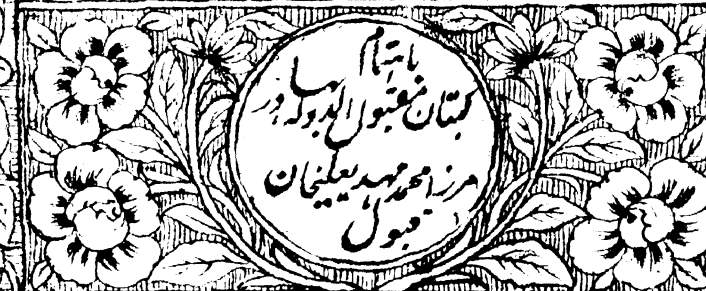 باہتمام
کپتان مقبول الدولہ بہادر
مرزا محمد مہدیعلیخان
قبول